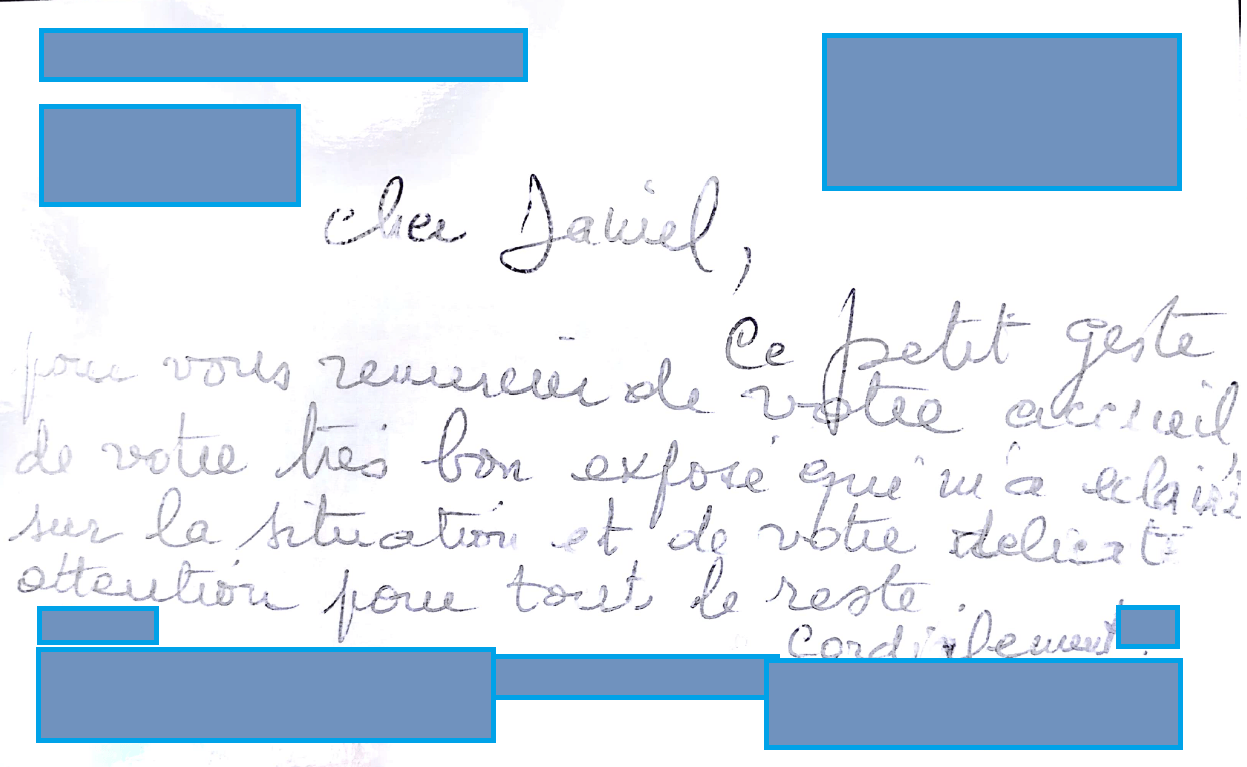 cher Daniel,
Ce petit geste
pour vous remercier de votre accueil
de votre très bon exposé qui m'a éclairé
sur la situation et de votre délicat
attention pour tout le reste.
Cordialement.